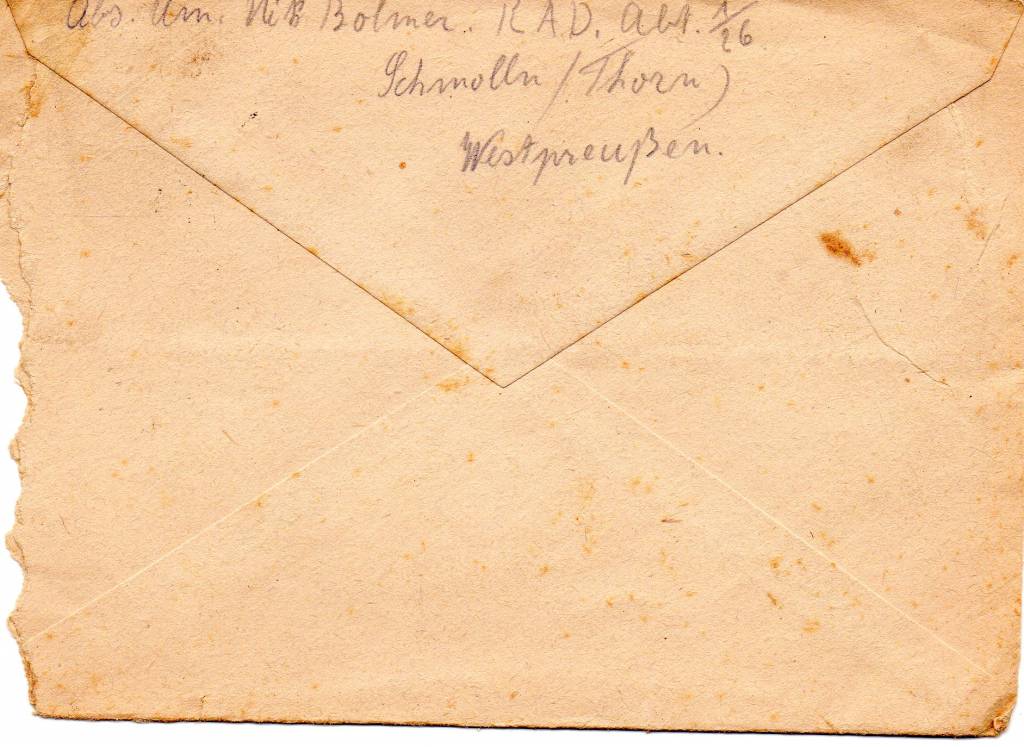 Abs. Am. Nik Bolmer. R.A.D. Abt. 1/26
Schmolln (Thorn)
Westpreußen.